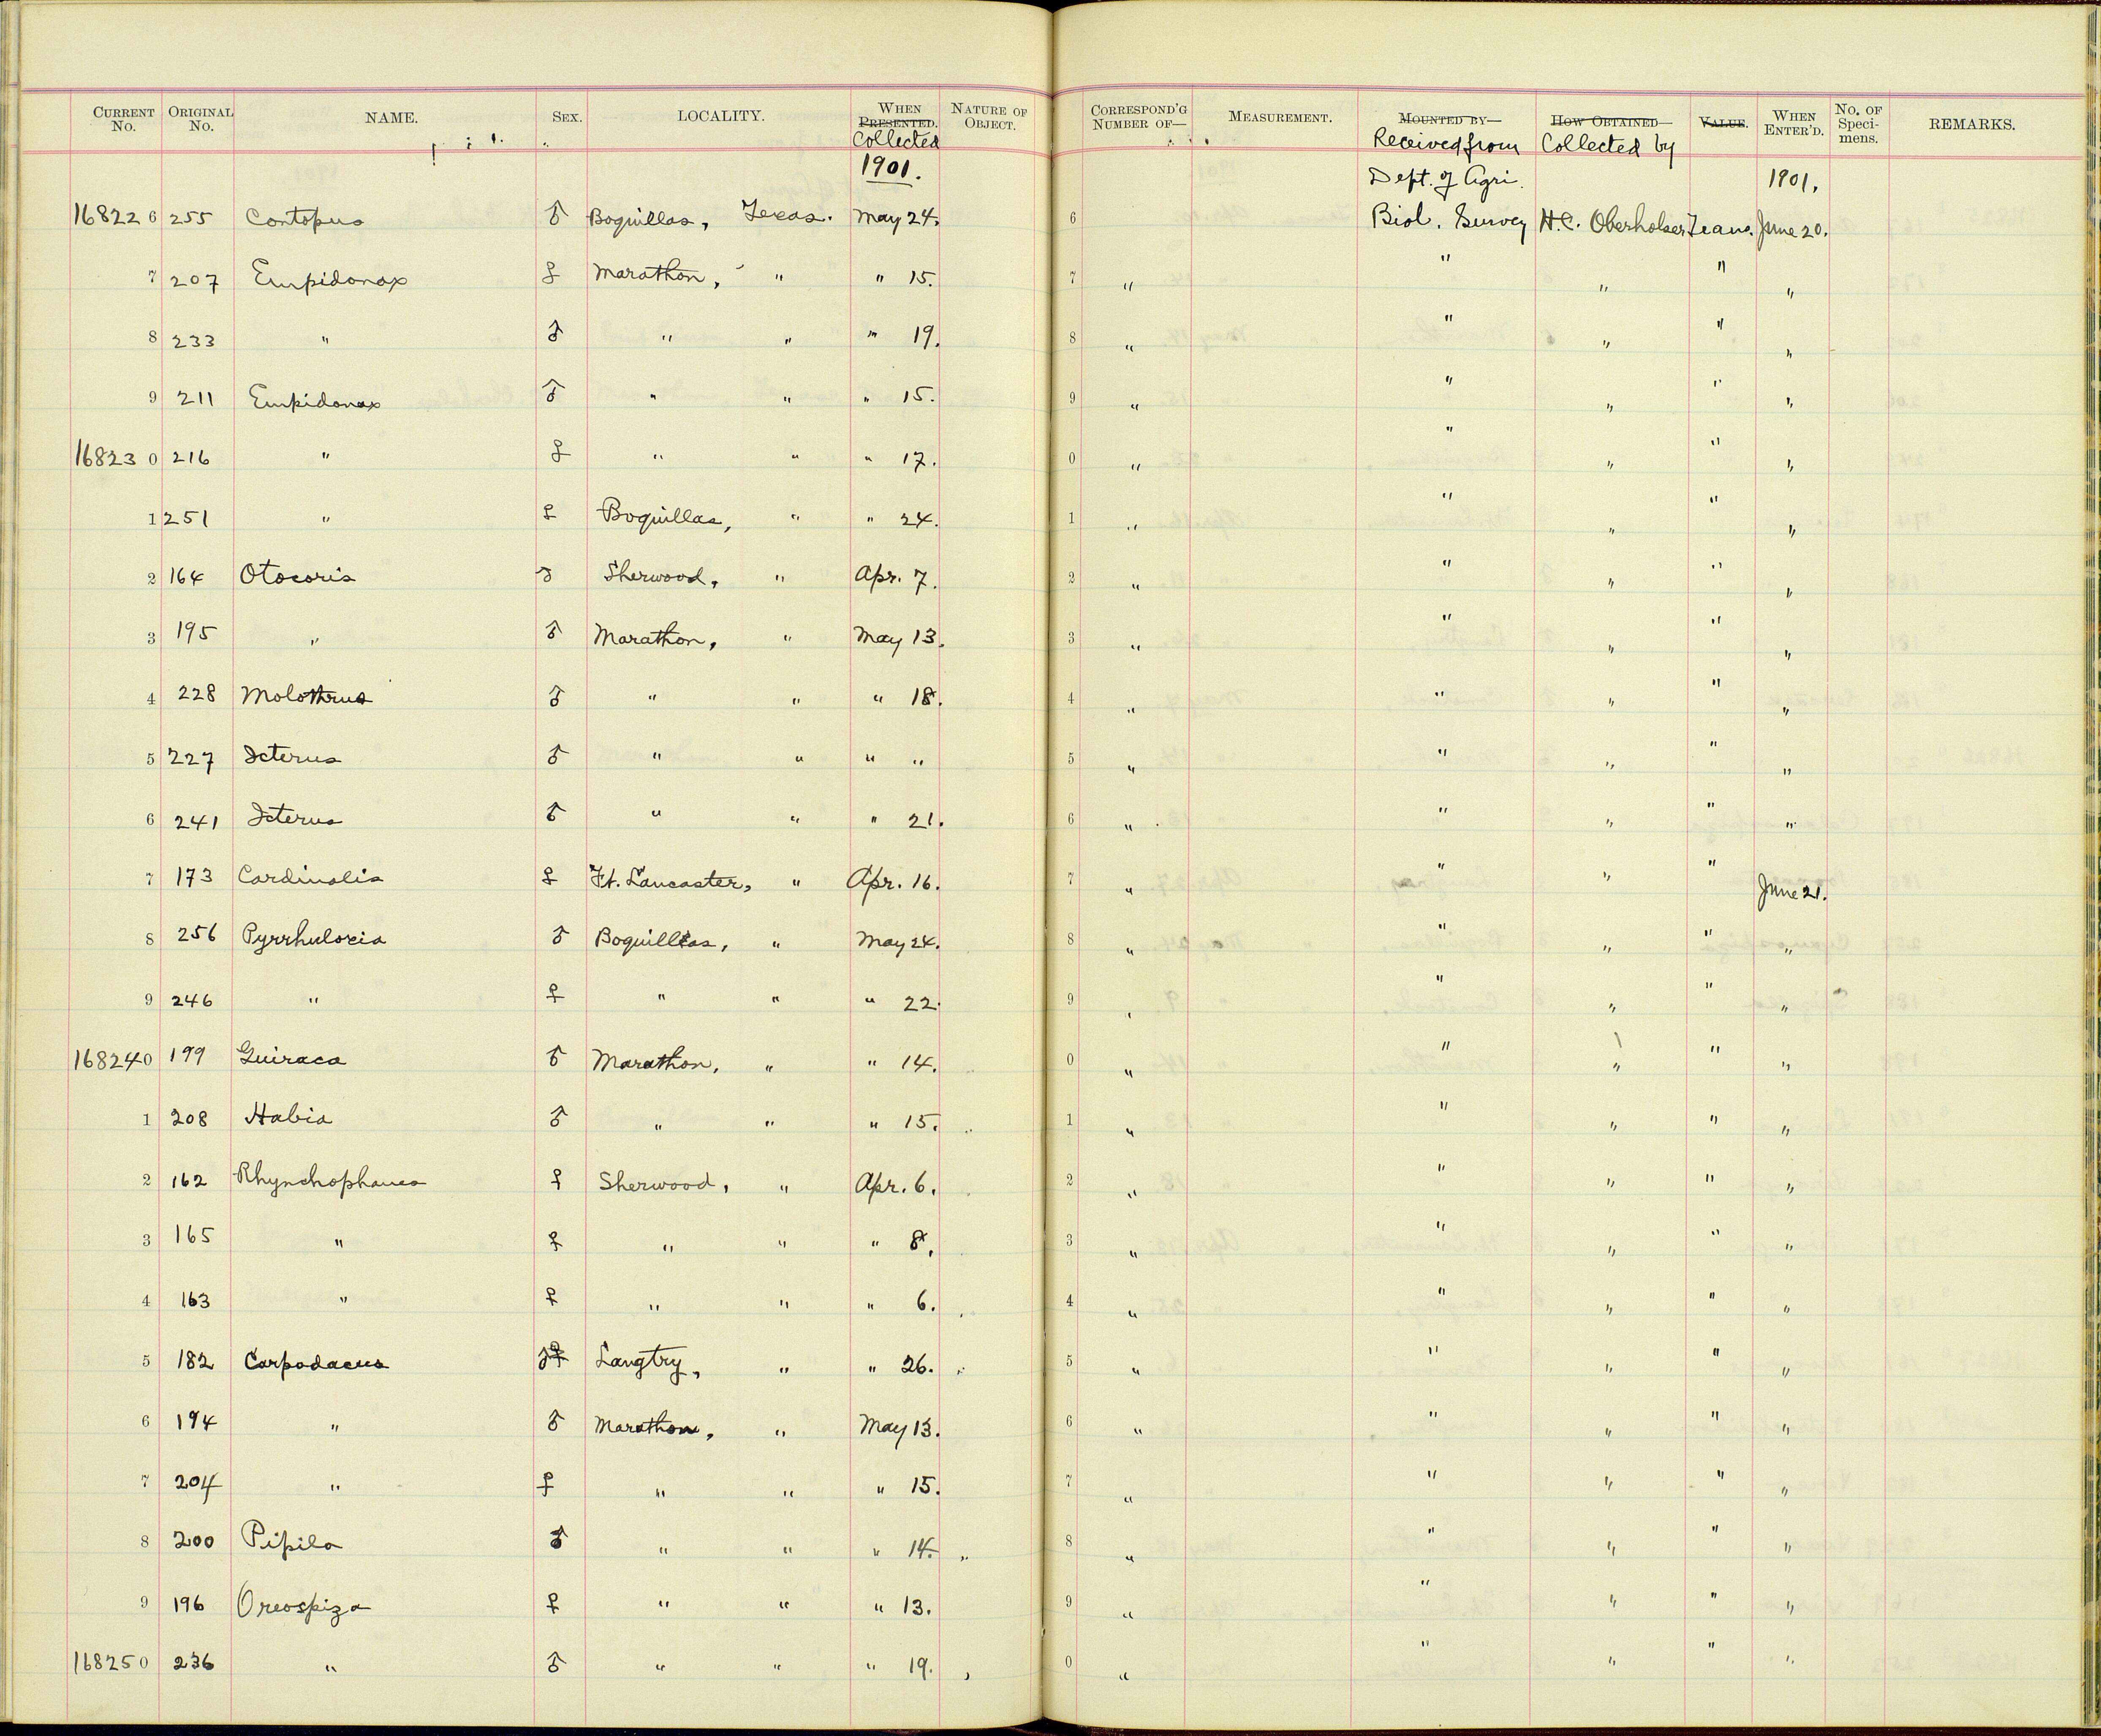 CURRENT No. ORIGINAL No. NAME. SEX. LOCALITY. WHEN PRESENTED. Collected NATURE OF OBJECT. CORRESPOND'G NUMBER OF— MEASUREMENT. MOUNTED BY— Received from HOW OBTAINED— Collected by VALUE. WHEN ENTER'D. No. OF Speci-mens. REMARKS.
1901. Dept. of Agri. 1901.
168226 255 Contopus ♂ Boquillas, Texas. May 24. 6 Biol. Survey H.C. Oberholser Trans. June 20.
7 207 Empidonax ♀ Marathon, " " 15. 7 " " " " "
8 233 " ♂ " " " 19. 8 " " " " "
9 211 Empidonax ♂ " " " 15. 9 " " " " "
168230 216 " ♀ " " " 17. 0 " " " " "
1 251 " ♀ Boquillas, " " 24. 1 " " " " "
2 164 Otocoris ♂ Sherwood, " Apr. 7. 2 " " " " "
3 195 " ♂ Marathon, " May 13. 3 " " " " "
4 228 Molothrus ♂ " " " 18. 4 " " " " "
5 227 Icterus ♂ " " " " 5 " " " " "
6 241 Icterus ♂ " " " 21. 6 " " " " "
7 173 Cardinalis ♀ Ft. Lancaster, " Apr. 16. 7 " " " " June 21.
8 256 Pyrrhuloxia ♂ Boquillas, " May 24. 8 " " " " "
9 246 " ♀ " " " 22. 9 " " " " "
168240 199 Guiraca ♂ Marathon, " " 14. 0 " " " " "
1 208 Habia ♂ " " " 15. 1 " " " " "
2 162 Rhynchophanes ♀ Sherwood, " Apr. 6. 2 " " " " "
3 165 " ♀ " " " 8. 3 " " " " "
4 163 " ♀ " " " 6. 4 " " " " "
5 182 Carpodacus ♀ Langtry, " " 26. 5 " " " " "
6 194 " ♂ Marathon, " May 13. 6 " " " " "
7 204 " ♀ " " " 15. 7 " " " " "
8 200 Pipilo ♂ " " " 14. " 8 " " " " "
9 196 Oreospiza ♀ " " " 13. 9 " " " " "
168250 236 " ♂ " " " 19. 0 " " " " "